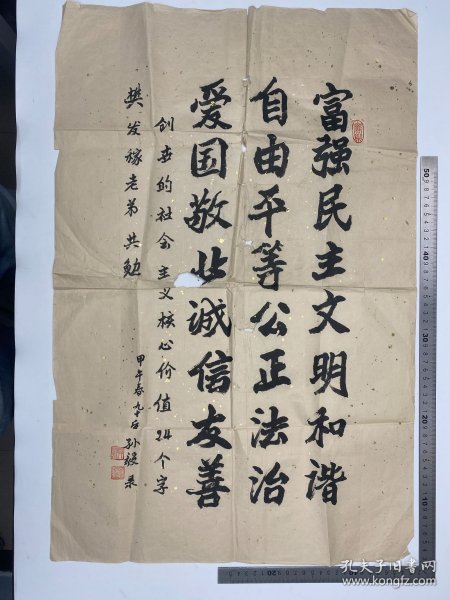 富强民主文明和谐
自由平等公正法治
爱国敬业诚信友善
的社会主义核心价值24个字
樊发稼老弟共勉
甲午春九十后孙毅录
孔夫子旧书网
www.kongfz.com